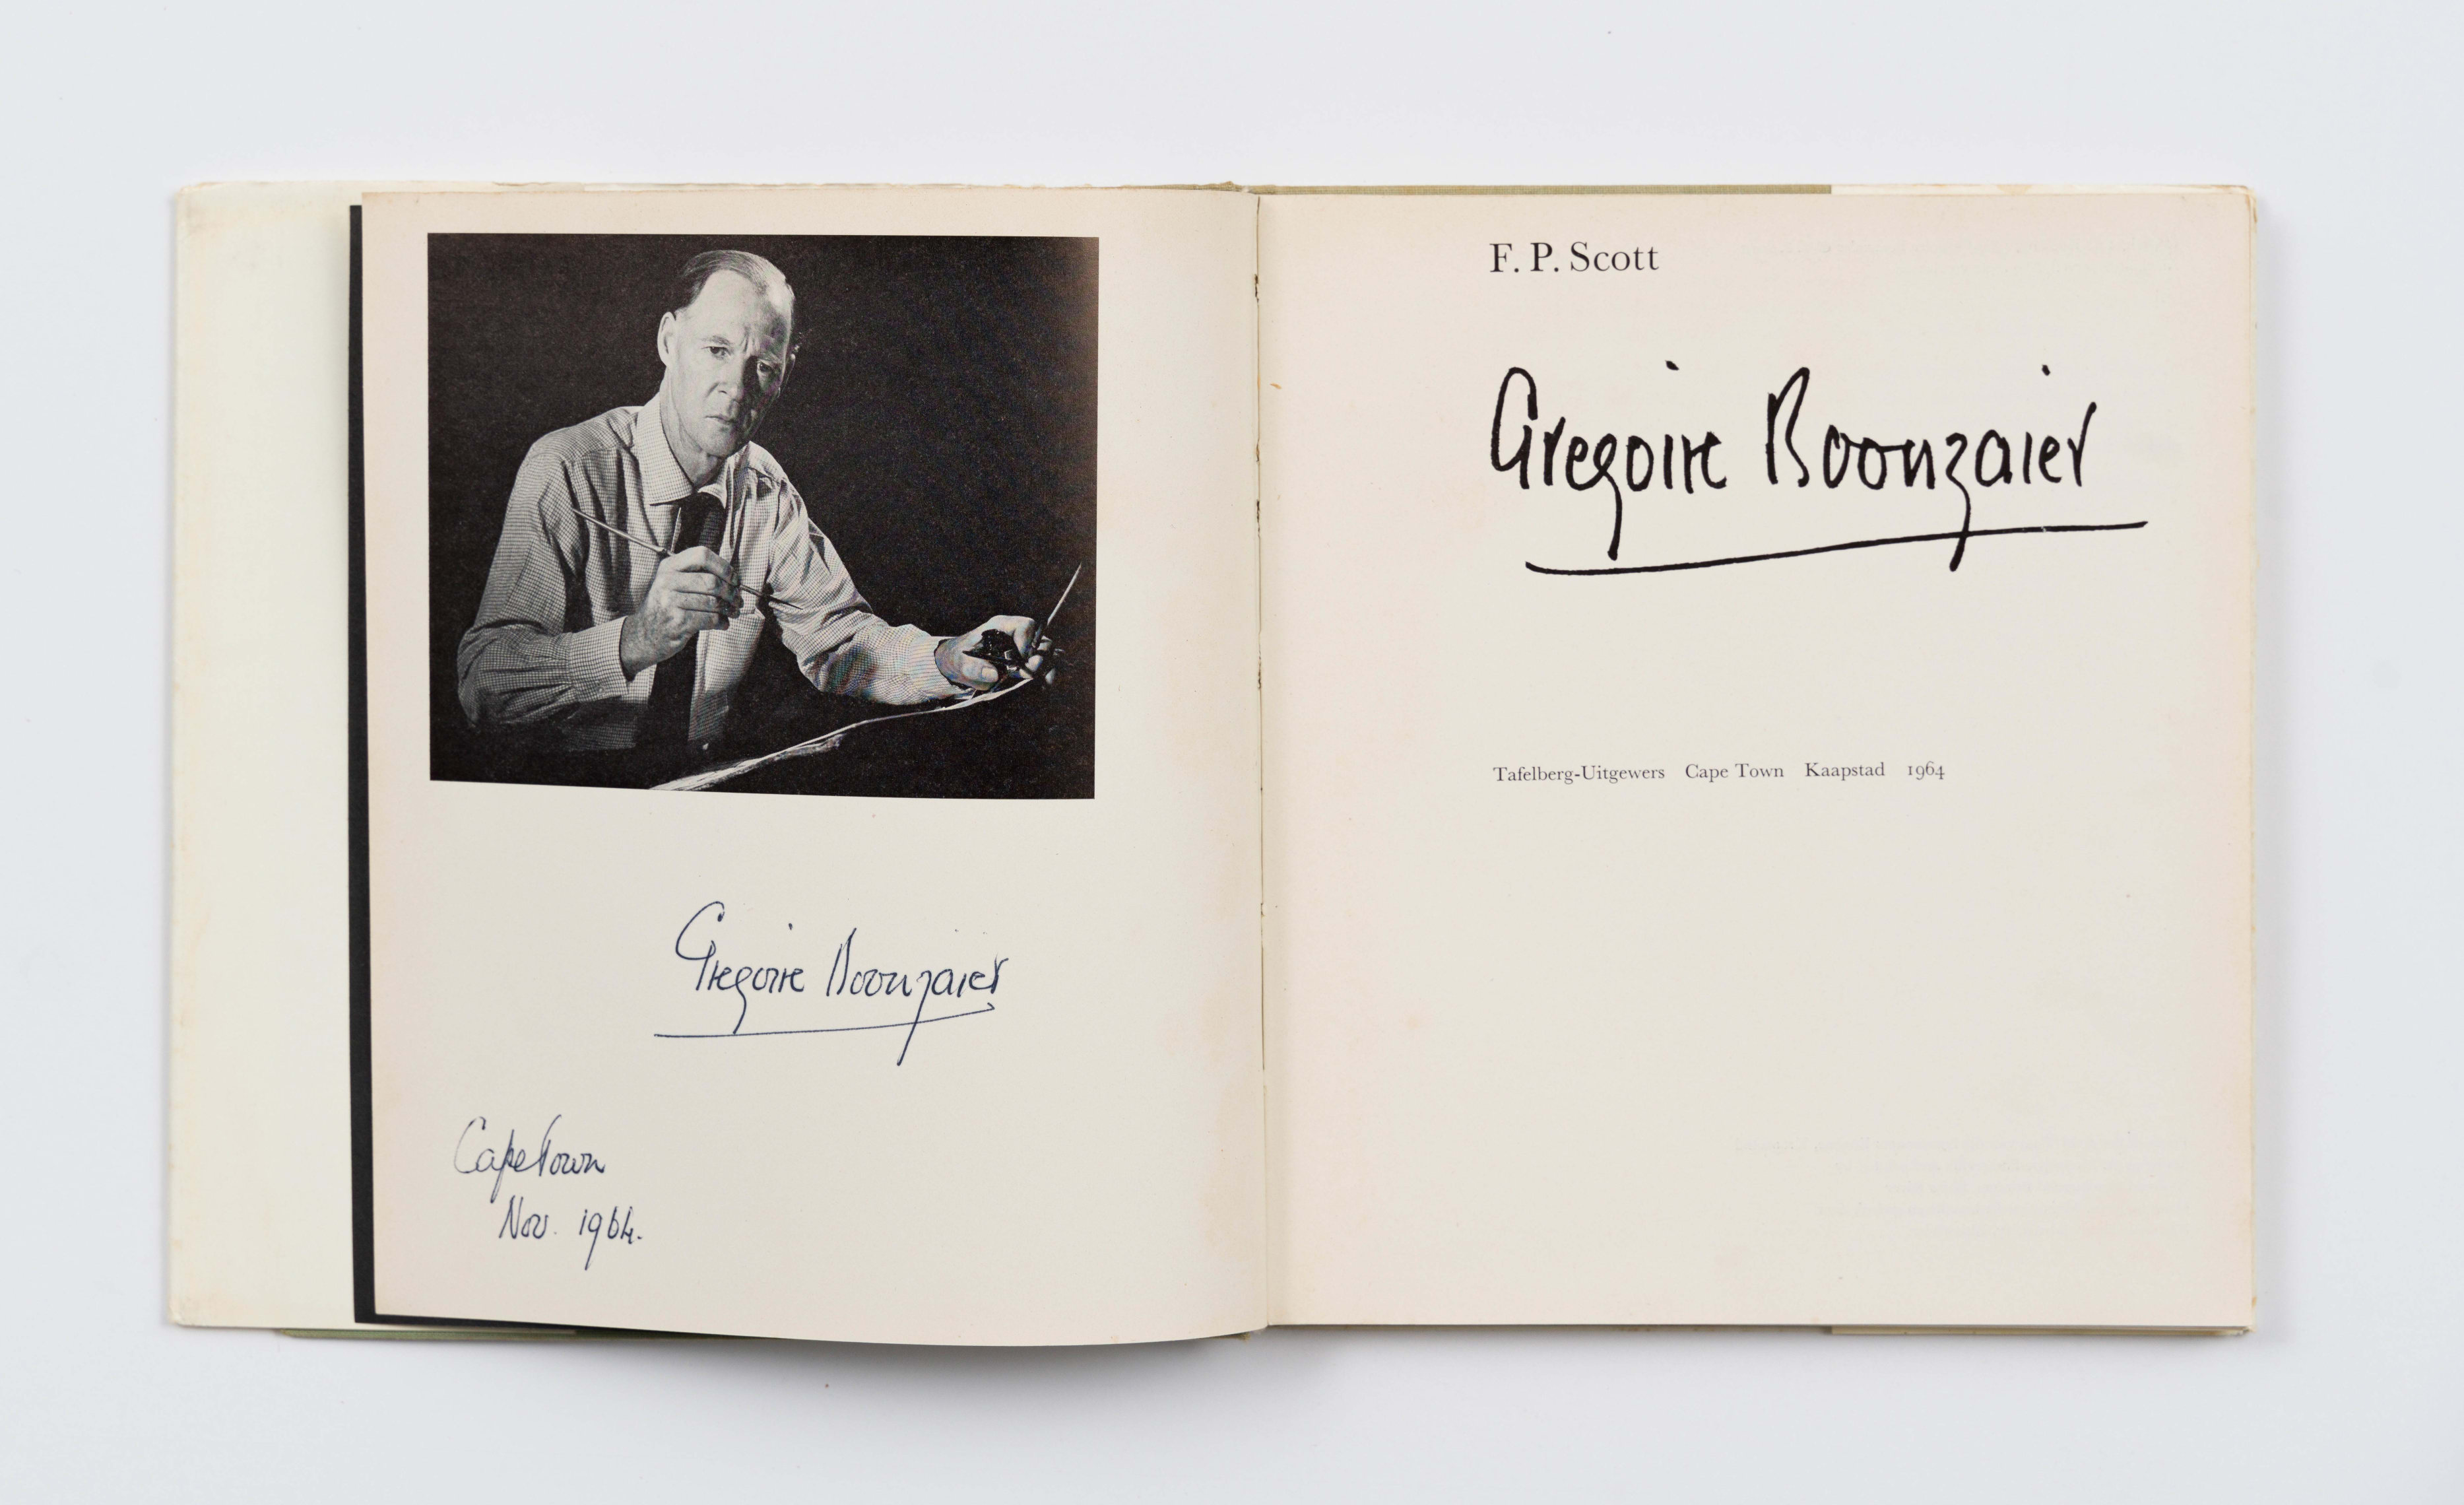 Gregoire Boonzaier
Cape Town
Nov. 1964.
F. P. Scott
Gregoire Boonzaier
Tafelberg-Uitgewers Cape Town Kaapstad 1964